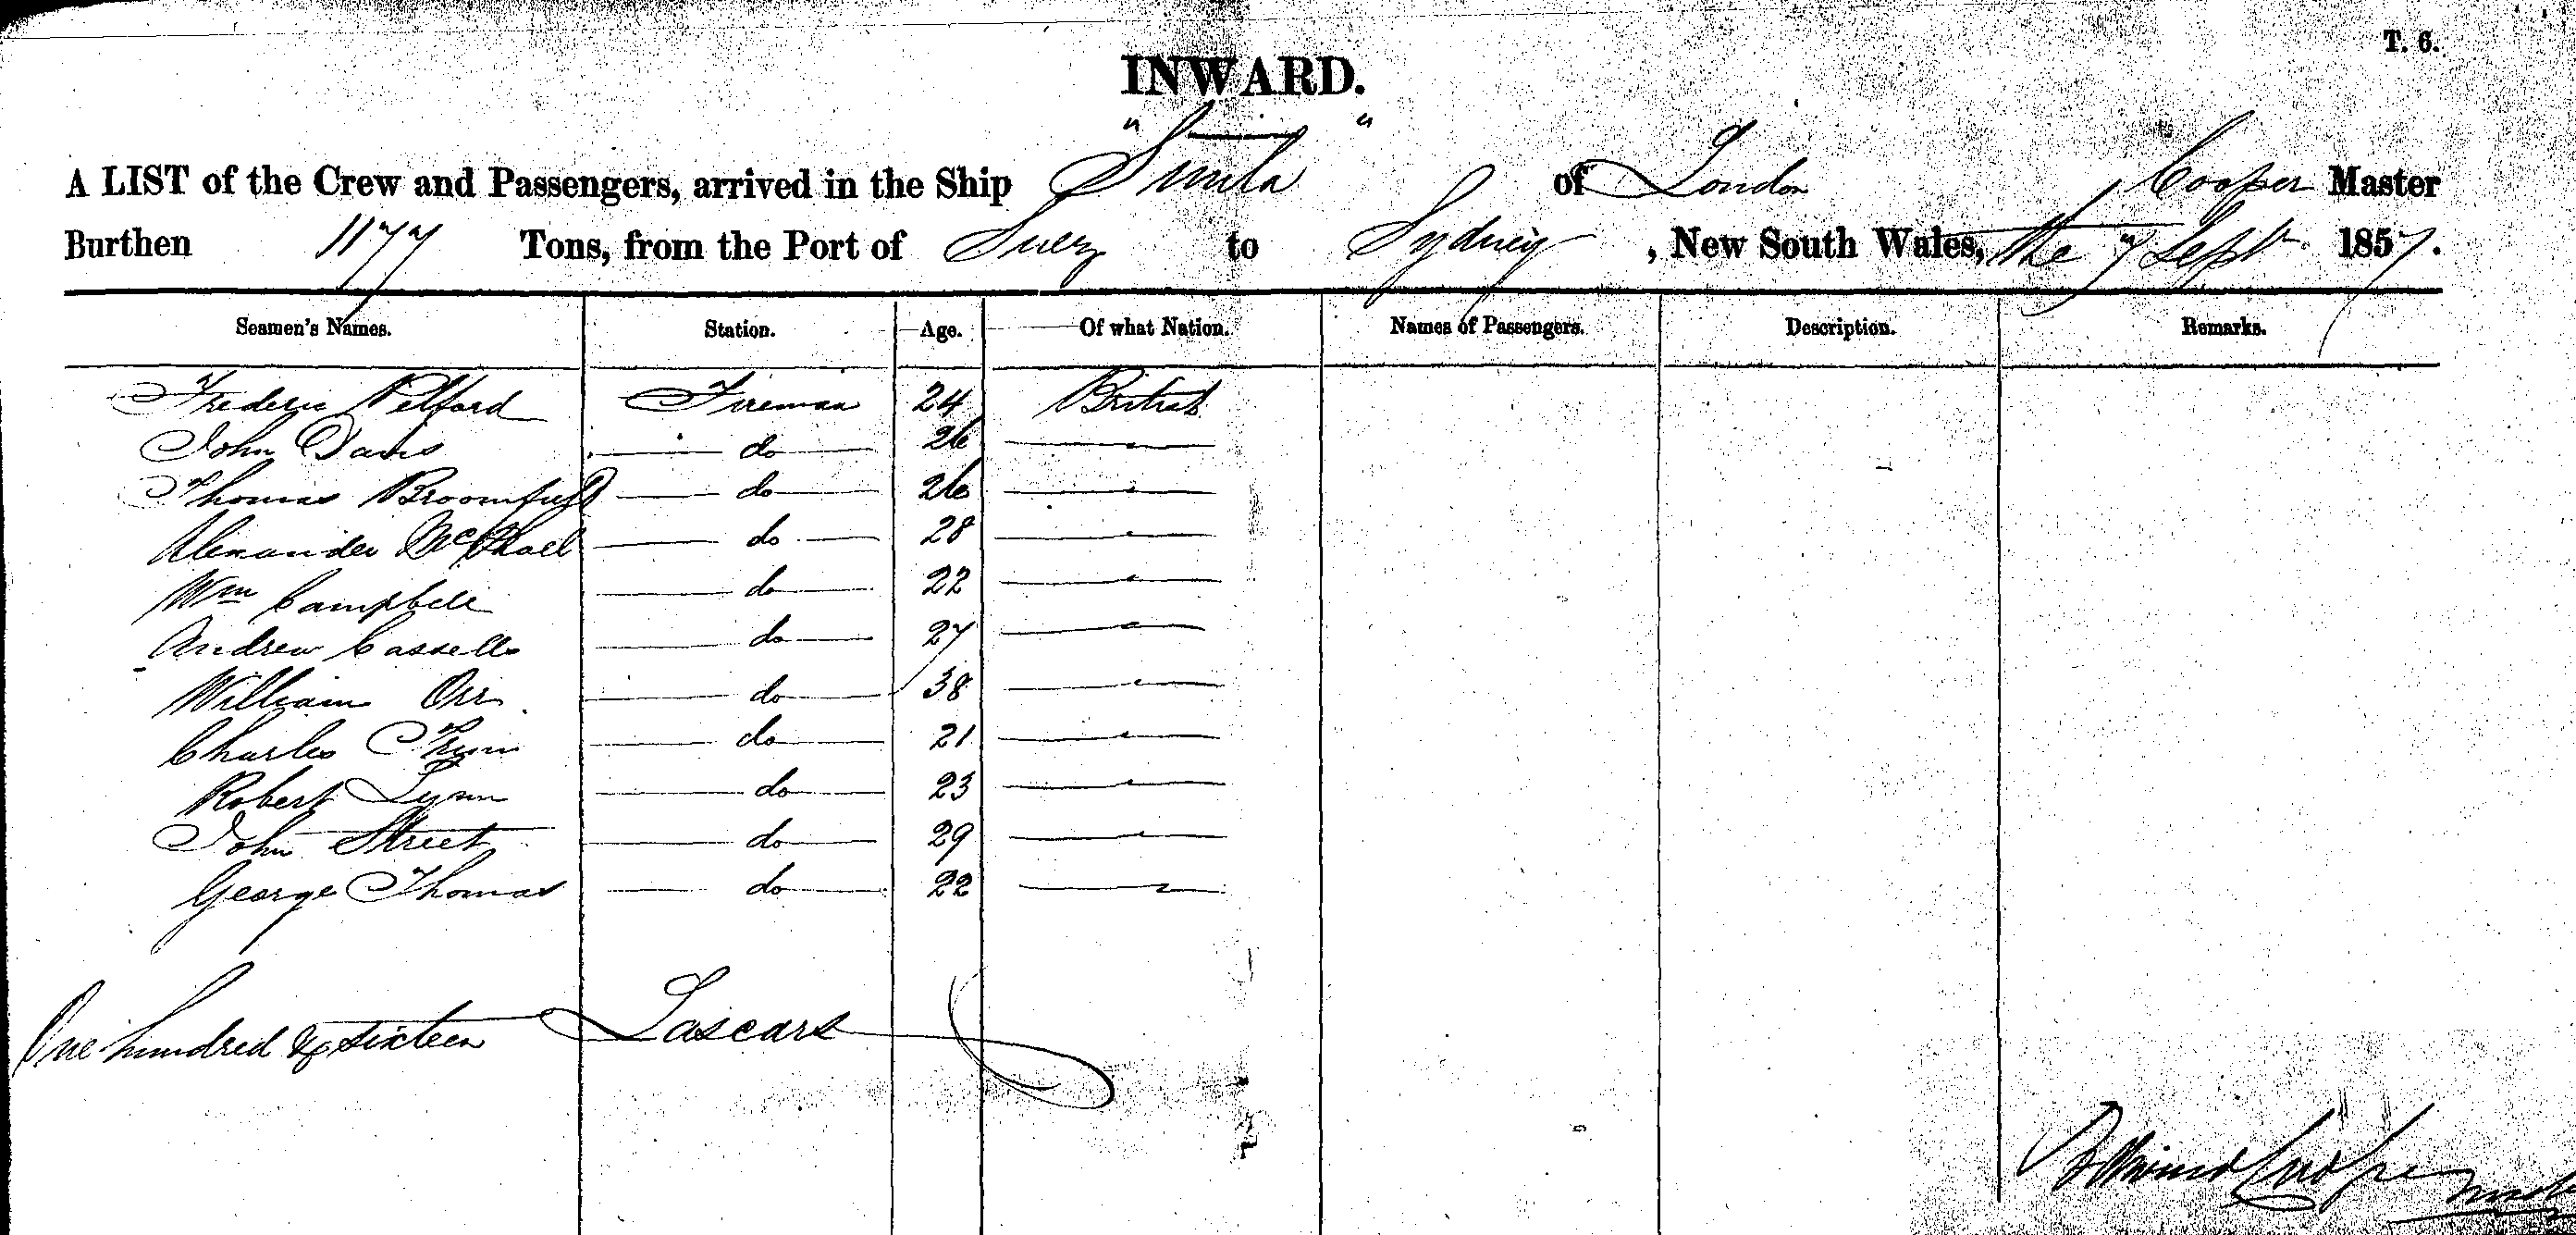 T. 6.
INWARD.
A LIST of the Crew and Passengers, arrived in the Ship "Simla" of London Cooper Master
Burthen 1177 Tons, from the Port of Suez to Sydney, New South Wales, the 7 Sept 1857.
Seamen's Names. Station. Age. Of what Nation. Names of Passengers. Description. Remarks.
Frederic Pelford Fireman 24 British
John Davis do 26 "
Thomas Broomfield do 26 "
Alexander McPhail do 28 "
Wm Campbell do 22 "
Andrew Cassells do 27 "
William Orr do 38 "
Charles do 21 "
Robert Lynn do 23 "
John Street do 29 "
George Thomas do 22 "
One hundred & sixteen Lascars
Cooper